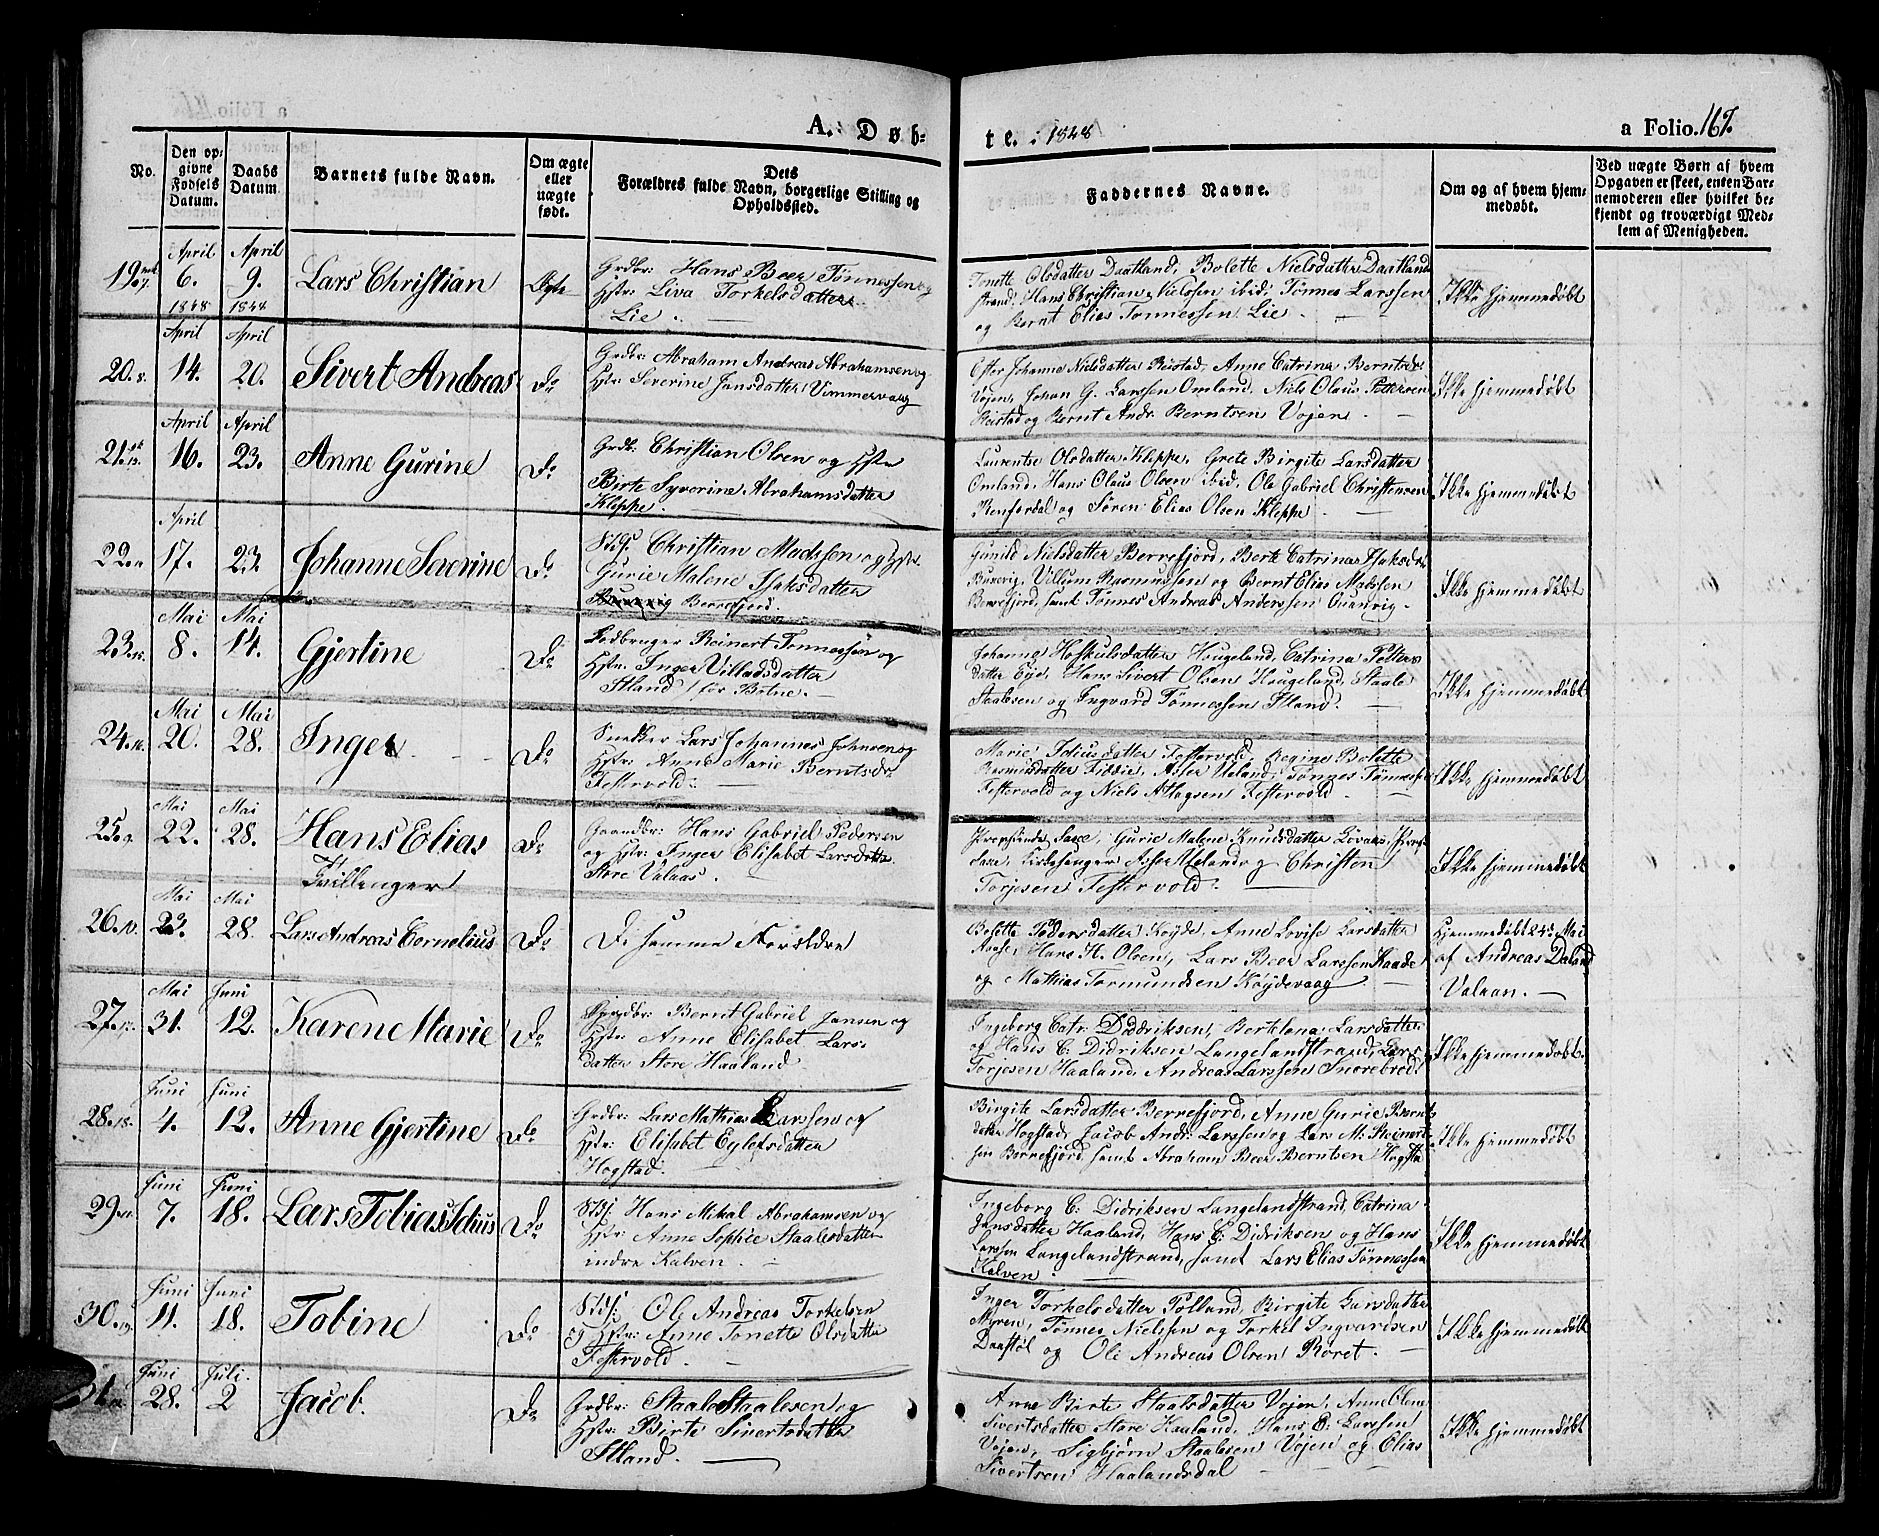 A. Døb-
te. 1848
a Folio. 167.
No.
Den op-
givne
Fødsels
Datum.
Daabs
Datum.
Barnets fulde Navn.
Om ægte
eller
uægte
født.
Dets
Forældres fulde Navn, borgerlige Stilling og
Opholdssted.
Faddernes Navne.
Om og af hvem hjem-
medøbt.
Ved uægte Børn af hvem
Opgaven er skeet, enten Bar-
nemoderen eller hvilket be-
kjendt og troværdigt Med-
lem af Menigheden.
19 April 6. 1848 April 9. 1848 Lars Christian Ægte
Grdbr: Hans Beer Tønnessen og
Hstr: Liva Torkelsdatter
Lie.
Tonette Olsdatter Daatland, Bolette Nielsdatter Daatland
strand, Hans Christian Nielssen ibid, Tønnes Larssen
og Bernt Elias Tønnessen Lie.
Ikke hjemmedøbt
20. April 14. April 20. Sivert Andreas Do
Grdbr: Abraham Andreas Abrahamsen og
Hstr: Severine Jansdatter Vimmervaag
Johanne Nielsdatter Reistad, Anne Catrina Berntsdr
Vojen, Johan G. Larssen Omland, Niels Olaus Pettersen
Reistad og Bernt Andr. Berntsen Vojen.
Ikke hjemmedøbt
21. April 16. April 23. Anne Gurine Do
Grdbr: Christian Olsen og Hstr
Birte Syverine Abrahamsdatter
Kleppe.
Laurentse Olsdatter Kleppe, Grete Birgite Larsdatter
Omland, Hans Olaus Olsen ibid, Ole Gabriel Christensen
Renfordal og Sören Elias Olsen Kleppe.
Ikke hjemmedøbt
22. April 17. 23. Johanne Severine Do
Christian Madssen og Hstr.
Gurie Malene Isaksdatter
Berrefjord.
Gunild Nielsdatter Berrefjord, Berte Catrina Isaksdr
Buevig, Villum Rasmussen og Bernt Elias Madssen
Berrefjord, samt Tønnes Andreas Anderssen Quanvig.
Ikke hjemmedøbt
23. Mai 8. Mai 14. Gjertine Do
Jodbruger Reinert Tønnessen og
Hstr. Inger Villadsdatter
Stland
Johanna Hofkulsdatter Hougeland, Catrina Petters
datter Eyd, Hans Sivert Olsen Hougeland, Staale
Staalesen og Ingvard Tønnessen Stland.
Ikke hjemmedøbt
24. Mai 20. Mai 28. Inger Do
Snedker Lars Johannes Johnsen og
Hstr: Anne Marie Berntsdr.
Festervold.
Marie Joliusdatter Festervold, Regine Bolette
Rasmusdatter Fiddie, Asser Ueland, Tönnes Tønnessen
Festervold og Niels Atlagsen Festervold.
Ikke hjemmedøbt
25. Mai 22. Mai 28. Hans Elias Do
Tvillinger
Gaardbr: Hans Gabriel Pedersen
og Hstr: Inger Elisabet Larsdatter
Store Valaas.
Saxe, Gurie Malene Knudsdatter Lövaas,
Saxe, Kirkesanger Asser Ueland og Christen
Torjesen Festervold.
Ikke hjemmedøbt
26. Mai 23. Mai 28. Lars Andreas Cornelius Do
De samme Forældre
Bolette Pedersdatter Röyde, Anne Lovise Larsdatter
Aase, Hans H. Olsen, Lars Beer Larssen Haade
og Mathias Tormundsen Röydevaag
Hjemmedøbt 24de Mai
af Andreas Daland
Valaan.
27. Mai 31. Juni 12. Karene Marie Do
Bernt Gabriel Jansen og
Hstr: Anne Elisabet Lars-
datter Store Haaland.
Ingeborg Catr: Didriksen, Bertelena Larsdatter
og Hans C. Didriksen Langelandstrand, Lars
Torjesen Haaland, Andreas Larssen Snorebrod.
Ikke hjemmedøbt.
28. Juni 4. Juni 12. Anne Gjertine Do
Grdbr: Lars Mathias Larssen og
Hstr: Elisabet Eylefsdatter
Hogstad.
Birgite Larsdatter Berrefjord, Anne Gurie Bernts
datter Hogstad, Jacob Andr: Larssen og Lars M: Steinert-
sen Berrefjord samt Abraham Beer Berntsen Hogstad
Ikke hjemmedøbt
29. Juni 7. Juni 18. Lars Tobias Do
Hans Mikal Abrahamsen og
Hstr: Anne Sophie Staalesdatter
indre Kalven.
Ingeborg C: Didriksen Langelandstrand, Catrina
Jansdatter Haaland, Hans C: Didriksen og Hans
Larssen Langelandstrand, samt Lars Elias Tønnessen
Kalven.
Ikke hjemmedøbt
30. Juni 11. Juni 18. Tobine Do
Ole Andreas Torkelsen
Hstr: Anne Tonette Olsdatter
Festervold.
Inger Torkelsdatter Polland, Birgite Larsdatter
Myren, Tønnes Nielssen og Torkel Ingvardsen
Daastöl og Ole Andreas Olsen Röret.
Ikke hjemmedøbt
31. Juni 28. Juli 2 Jacob. Do
Grdbr: Staale Staalesen og
Hstr: Birte Sivertsdatter
Stland.
Anne Birte Staalsdatter Vojen, Anne Olene
Sivertsdatter Store Haaland, Hans E. Larssen
Vojen, Sigbjørn Staalesen Vojen og Elias
Sivertsen Haalandsdal
Ikke hjemmedøbt